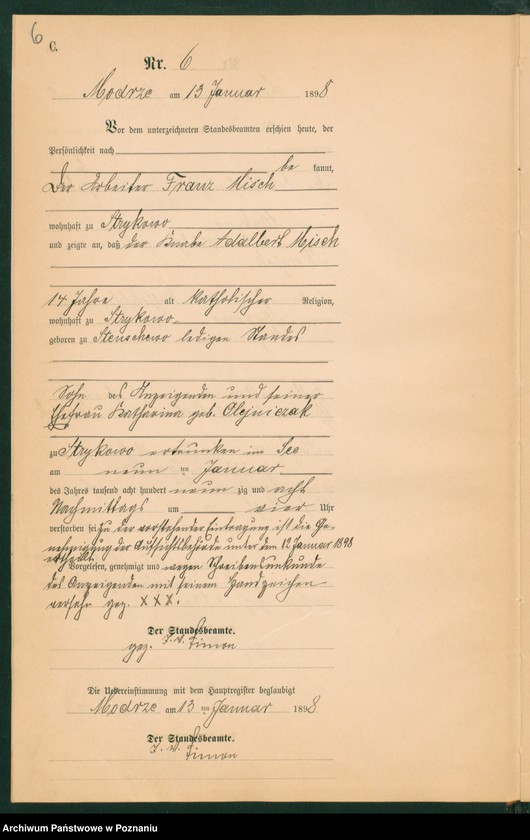 6
C.
Nr. 6
Modrze am 13 Januar 1898
Vor dem unterzeichneten Standesbeamten erschien heute, der
Persönlichkeit nach
be kannt,
Der Arbeiter Franz Misch
wohnhaft zu Strykowo
und zeigte an, daß der Knabe Adalbert Misch
14 Jahre alt katholischer Religion,
wohnhaft zu Strykowo
geboren zu Stenschewo ledigen Standes
Sohn des Anzeigenden und seiner
Ehefrau Katharina geb. Olejniczak
zu Strykowo ertrunken im See
am neun ten Januar
des Jahres tausend acht hundert neun zig und acht
Nachmittags um vier Uhr
verstorben sei zu der vorstehenden Eintragung ist die Ge-
nehmigung der Aufsichtsbehörde unter dem 12 Januar 1898
ertheilt.
Vorgelesen, genehmigt und wegen Schreibensunkunde
des Anzeigenden mit seinem Handzeichen
versehn gez. XXX.
Der Standesbeamte.
gez. I. V. Simon
Die Uebereinstimmung mit dem Hauptregister beglaubigt
Modrze am 13 ten Januar 1898
Der Standesbeamte.
I. V. Simon
Archiwum Państwowe w Poznaniu